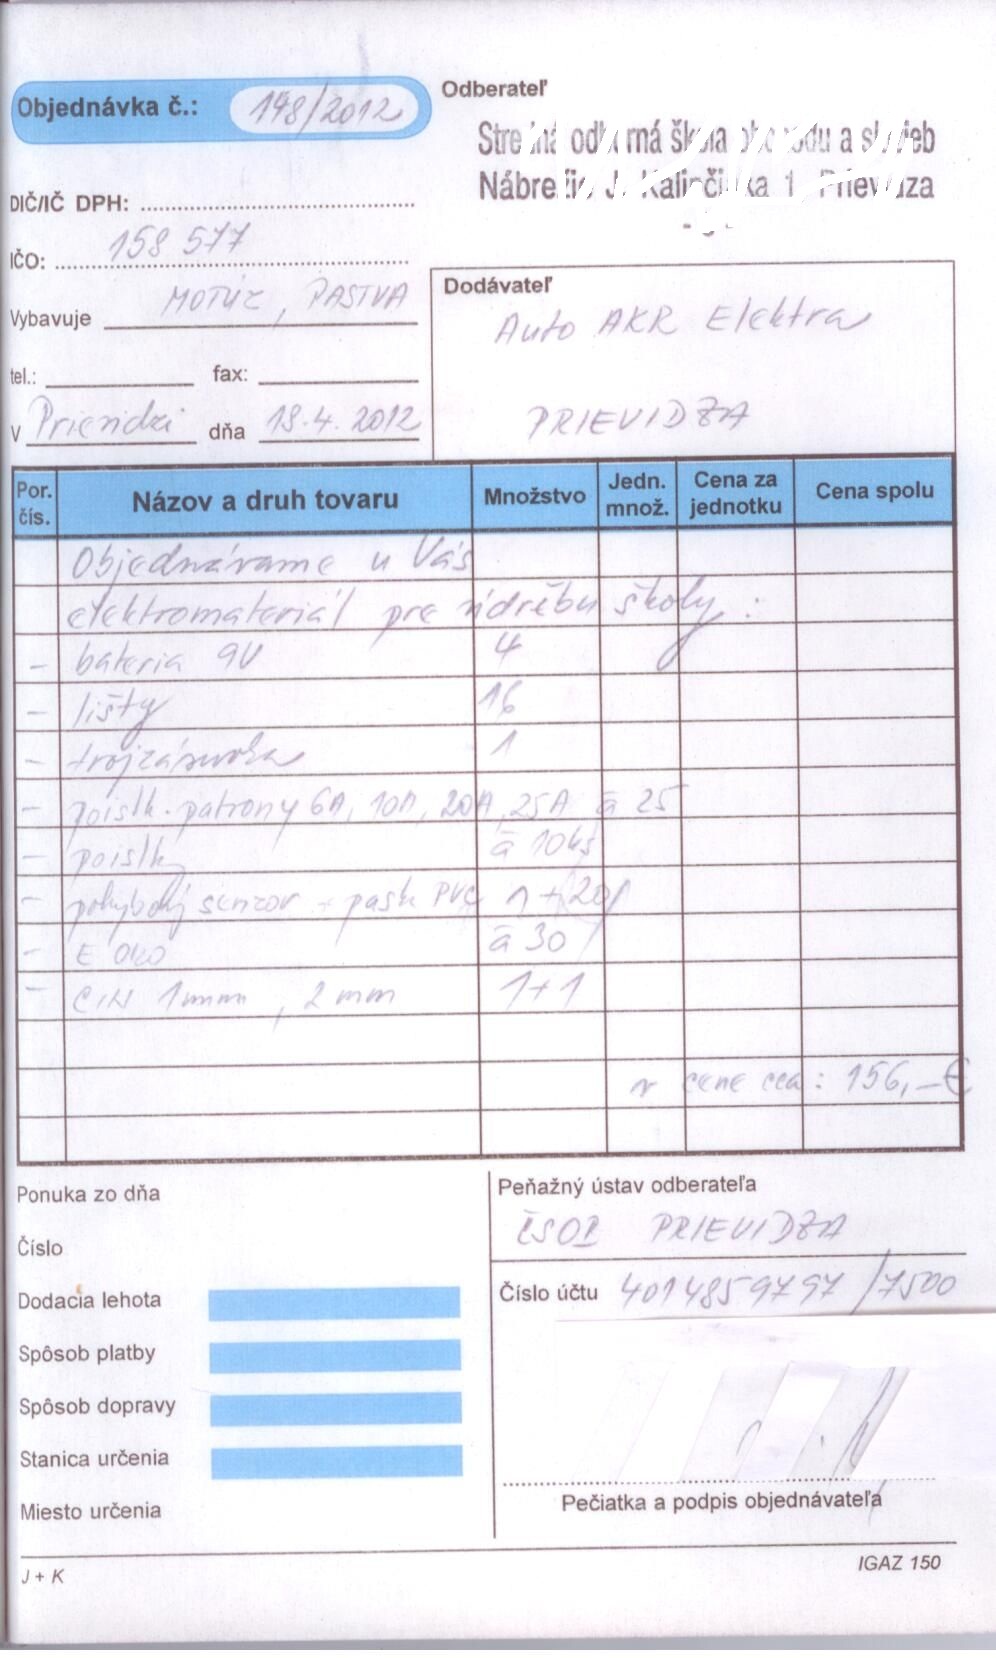 Objednávka č.: 148/2012
Odberateľ
Stredná odborná škola obchodu a služieb
Nábrežie J. Kalinčiaka 1, Prievidza
DIČ/IČ DPH:
IČO: 158 577
Vybavuje MOTÚZ, PASTVA
tel.: fax:
V Prievidzi dňa 18.4.2012
Dodávateľ
Auto AKR Elektra
PRIEVIDZA
Por. čís. Názov a druh tovaru Množstvo Jedn. množ. Cena za jednotku Cena spolu
Objednávame u Vás
elektromateriál pre údržbu školy :
- bateria 9V 4
- lišty 16
- trojzásuvka 1
- poistk. patrony 6A, 10A, 20A, 25A á 25
- poistky á 10ks
- pohybový senzor + PVC 1+20
- E oko á 30
- CÍN 1mm, 2mm 1+1
v cene cca : 156,-€
Ponuka zo dňa
Číslo
Dodacia lehota
Spôsob platby
Spôsob dopravy
Stanica určenia
Miesto určenia
Peňažný ústav odberateľa
ČSOB PRIEVIDZA
Číslo účtu 4014859797/7500
Pečiatka a podpis objednávateľa
J + K
IGAZ 150